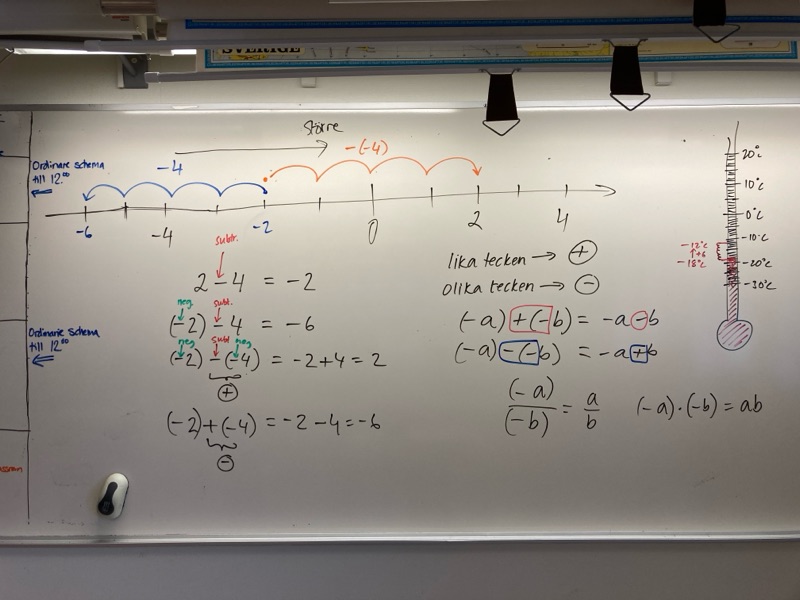 SVERIGE
Större
Ordinarie schema
till 12.00
-4
-(-4)
-6 -4 -2 0 2 4
subtr.
2 - 4 = -2
neg. subt.
(-2) - 4 = -6
neg. subt. neg
(-2) - (-4) = -2 + 4 = 2
+
(-2) + (-4) = -2 - 4 = -6
-
Ordinarie schema
till 12.00
lika tecken → +
olika tecken → -
(-a) + (-b) = -a - b
(-a) - (-b) = -a + b
(-a)/(-b) = a/b
(-a) · (-b) = ab
20°C
10°C
0°C
-10°C
-20°C
-30°C
-12°C
↑+6
-18°C